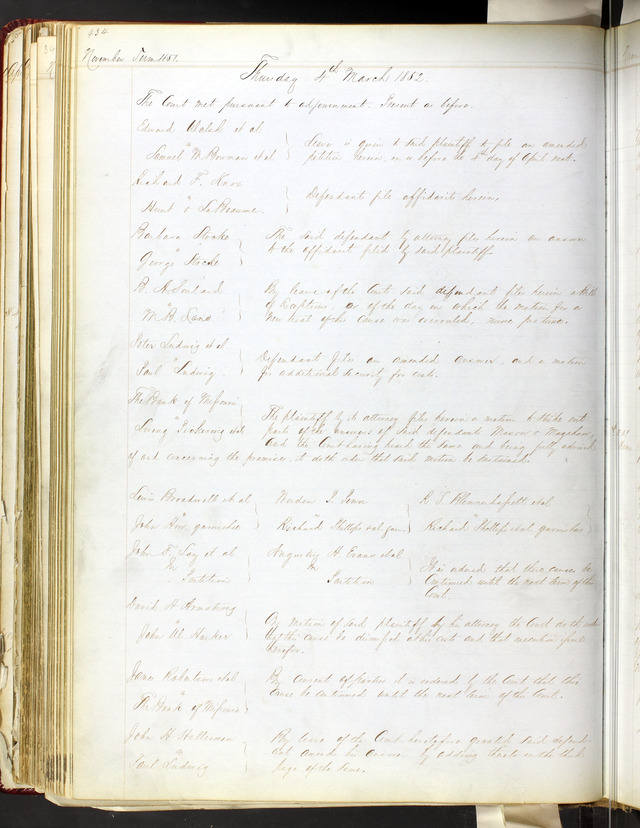 434
November Term 1851.
Thursday 4th March 1852
The Court met pursuant to adjournment. Present as before.
Edward Walsh et al
vs
Samuel W. Bowman et al
Leave is given to said plaintiff to file an amended
petition herein, on or before the 5th day of April next.
Richard F.
vs
Hunt & La Beaume
Defendants file affidavits herein,
Barbara
vs
George
The said defendant by attorney files herein an answer
to the affidavit filed by said plaintiff.
vs
Wm B.
By leave of the Court said defendant files herein a Bill
of Exceptions, as of the day on which the motion for a
new trial of the cause was overruled, nunc pro tunc.
Peter Ludwig et al
vs
Paul Ludwig.
Defendant files an amended answer, and a motion
for additional security for costs.
The Bank of Missouri
vs
et al
The plaintiff by its attorney files herein a motion to strike out
parts of the answers of said defendants Mason &
and the Court having heard the same and being fully advised
of and concerning the premises, it doth order that said motion be sustained.
Levin Broadwell et al
vs
John How garnishee
vs
Richard Phillips et al garn
et al
Richard Phillips et al garnishees
John F. Lay et al
In
Partition
Augustus H. Evans et al
In
Partition
It is ordered that these causes be
continued until the next term of the
Court.
David H. Armstrong
vs
John M. Harker
On motion of said plaintiff by his attorney the Court doth order
that this cause be dismissed at his costs and that execution issue
therefor.
James et al
vs
The Bank of Missouri
By consent of parties it is ordered by the Court that this
cause be continued until the next term of the Court.
John H.
vs
Paul Ludwig
By leave of the Court heretofore granted said defend-
ant amends his answer by adding thereto on the third
page of the same.